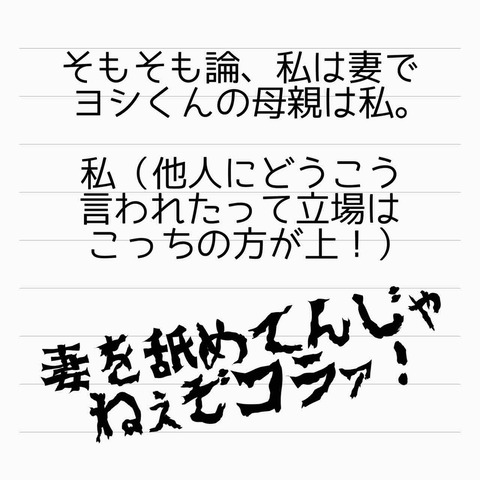 そもそも論、私は妻で
ヨシくんの母親は私。
私（他人にどうこう
言われたって立場は
こっちの方が上！）
妻を舐めてんじゃ
ねぇぞコラァ！